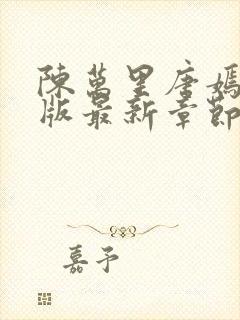 陳萬里唐嫣
版最新章節
嘉予